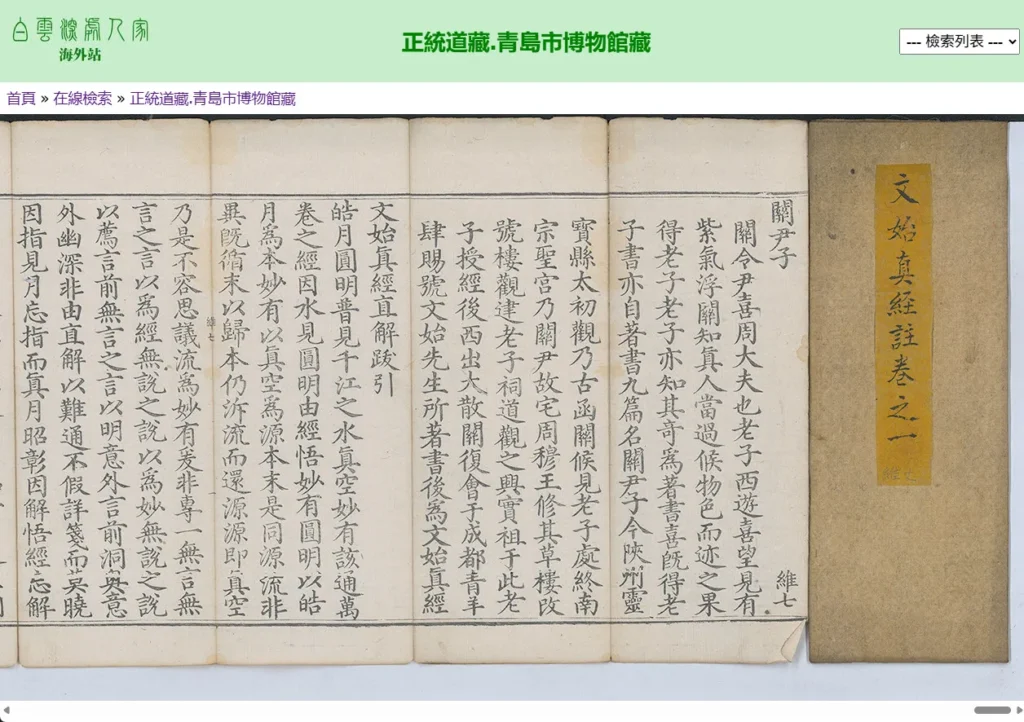 白雲深處人家
海外站
正統道藏.青島市博物館藏
--- 檢索列表 ---
首頁 » 在線檢索 » 正統道藏.青島市博物館藏
文始真經註卷之一
關尹子
維七
關令尹喜周大夫也老子西遊喜望見有
紫氣浮關知真人當過候物色而迹之果
得老子老子亦知其奇爲著書喜旣得老
子書亦自著書九篇名關尹子今陝州靈
寶縣太初觀乃古函關候見老子處終南
宗聖宫乃關尹故宅周穆王修其草樓改
號樓觀建老子祠道觀之興實祖于此老
子授經後西出大散關復會于成都青羊
肆賜號文始先生所著書後爲文始真經
文始真經直解跋引
皓月圓明普見千江之水真空妙有該通萬
卷之經因水見圓明由經悟妙有圓明以皓
月爲本妙有以真空爲源本末是同源流非
異旣循末以歸本仍泝流而還源源即真空
維七
乃是不容思議流爲妙有爰非專一無言無
言之言以爲經無說之說以爲妙無說之說
以薦言前無言之言以明意外言前洞奧意
外幽深非由直解以難通不假詳箋而莫曉
因指見月忘指而真月昭彰因解悟經忘解